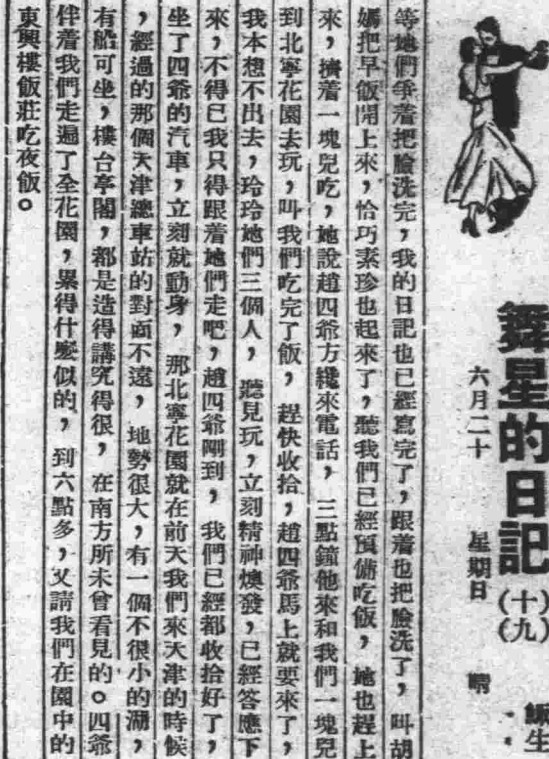 舞星的日記
(十九)
鯫生
六月二十　星期日　晴
等她們爭着把臉洗完，我的日記也已經寫完了，跟着也把臉洗了，叫胡
媽把早飯開上來，恰巧素珍也起來了，聽我們已經預備吃飯，她也趕上
來，擠着一塊兒吃，她說趙四爺方纔來電話，三點鐘他來和我們一塊兒
到北寧花園去玩，叫我們吃完了飯，趕快收拾，趙四爺馬上就要來了，
我本想不出去，玲玲她們三個人，聽見玩，立刻精神煥發，已經答應下
來，不得已我只得跟着她們走吧，趙四爺剛到，我們已經都收拾好了，
坐了四爺的汽車，立刻就動身，那北寧花園就在前天我們來天津的時候
，經過的那個天津總車站的對面不遠，地勢很大，有一個不很小的湖，
有船可坐，樓台亭閣，都是造得講究得很，在南方所未曾看見的。四爺
伴着我們走遍了全花園，累得什麼似的，到六點多，又請我們在園中的
東興樓飯莊吃夜飯。